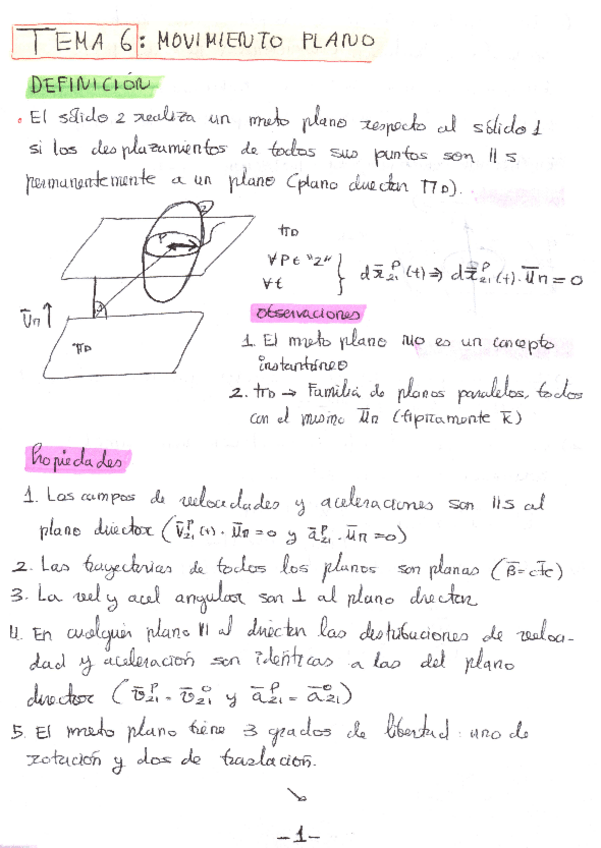 TEMA 6: MOVIMIENTO PLANO
DEFINICIÓN
• El sólido 2 realiza un mvto plano respecto al sólido 1
si los desplazamientos de todos sus puntos son || s
permanentemente a un plano (plano director ΠD).
2
P
ΠD
∀P ∈ "2"
∀t
} d x̄₂₁ᴾ(t) ⇒ d x̄₂₁ᴾ(t) · ūn = 0
ūn ↑
ΠD
Observaciones
1. El mvto plano NO es un concepto
instantáneo
2. ΠD → Familia de planos paralelos, todos
con el mismo ūn (típicamente k̄)
Propiedades
1. Los campos de velocidades y aceleraciones son ||s al
plano director (v̄₂₁ᴾ(t) · ūn = 0 y ā₂₁ᴾ · ūn = 0)
2. Las trayectorias de todos los planos son planas (B̄ = cte)
3. La vel y acel angular son ⊥ al plano director
4. En cualquier plano || al director las distribuciones de veloci-
dad y aceleración son idénticas a las del plano
director (v̄₂₁ᴾ = v̄₂₁ᴼ y ā₂₁ᴾ = ā₂₁ᴼ)
5. El mvto plano tiene 3 grados de libertad: uno de
rotación y dos de traslación.
↘
-1-